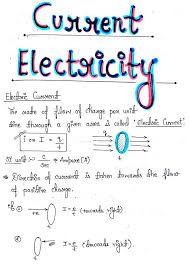 Current
Electricity
Electric Current
The rate of flow of charge per unit
time through a given area is called 'Electric Current'.
i or I = q/t
SI unit :- C/sec → Ampere (A)
→ Direction of current is taken towards the flow
of positive charge.
I = q/t (towards right)
I = q/t (towards right)